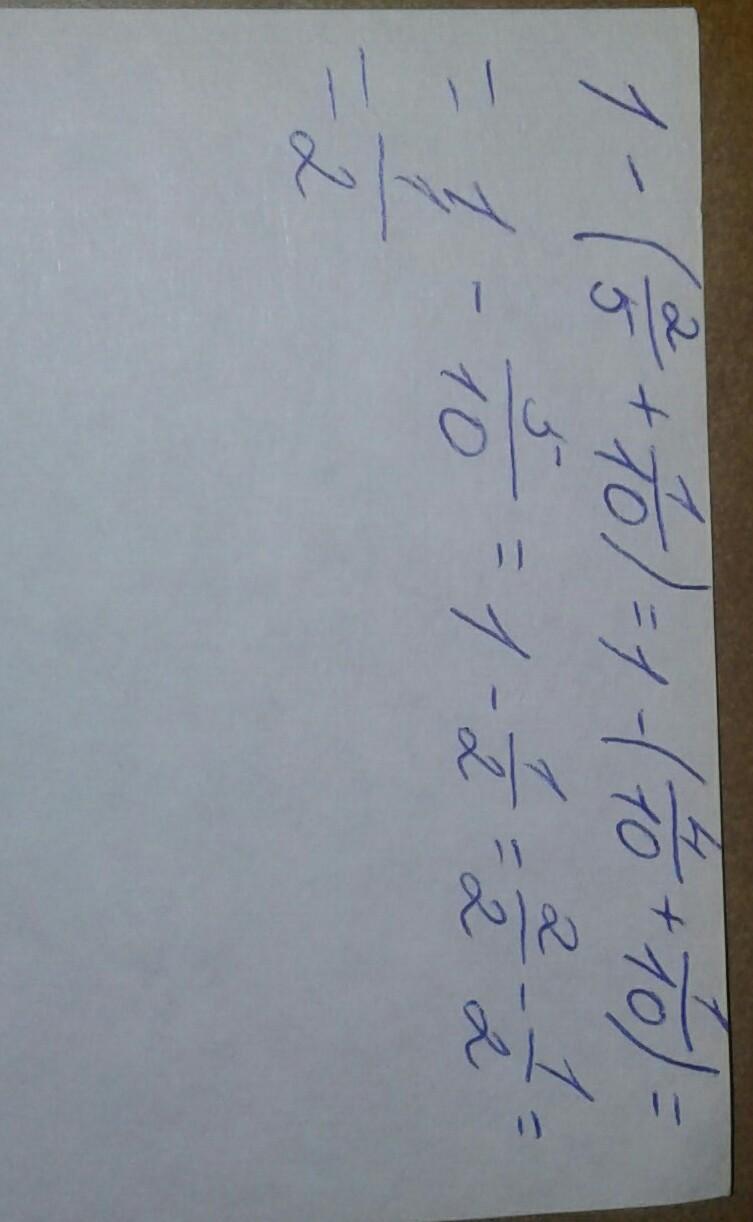 1 - (2/5 + 1/10) = 1 - (4/10 + 1/10) =
= 1 - 5/10 = 1 - 1/2 = 2/2 - 1/2 =
= 1/2